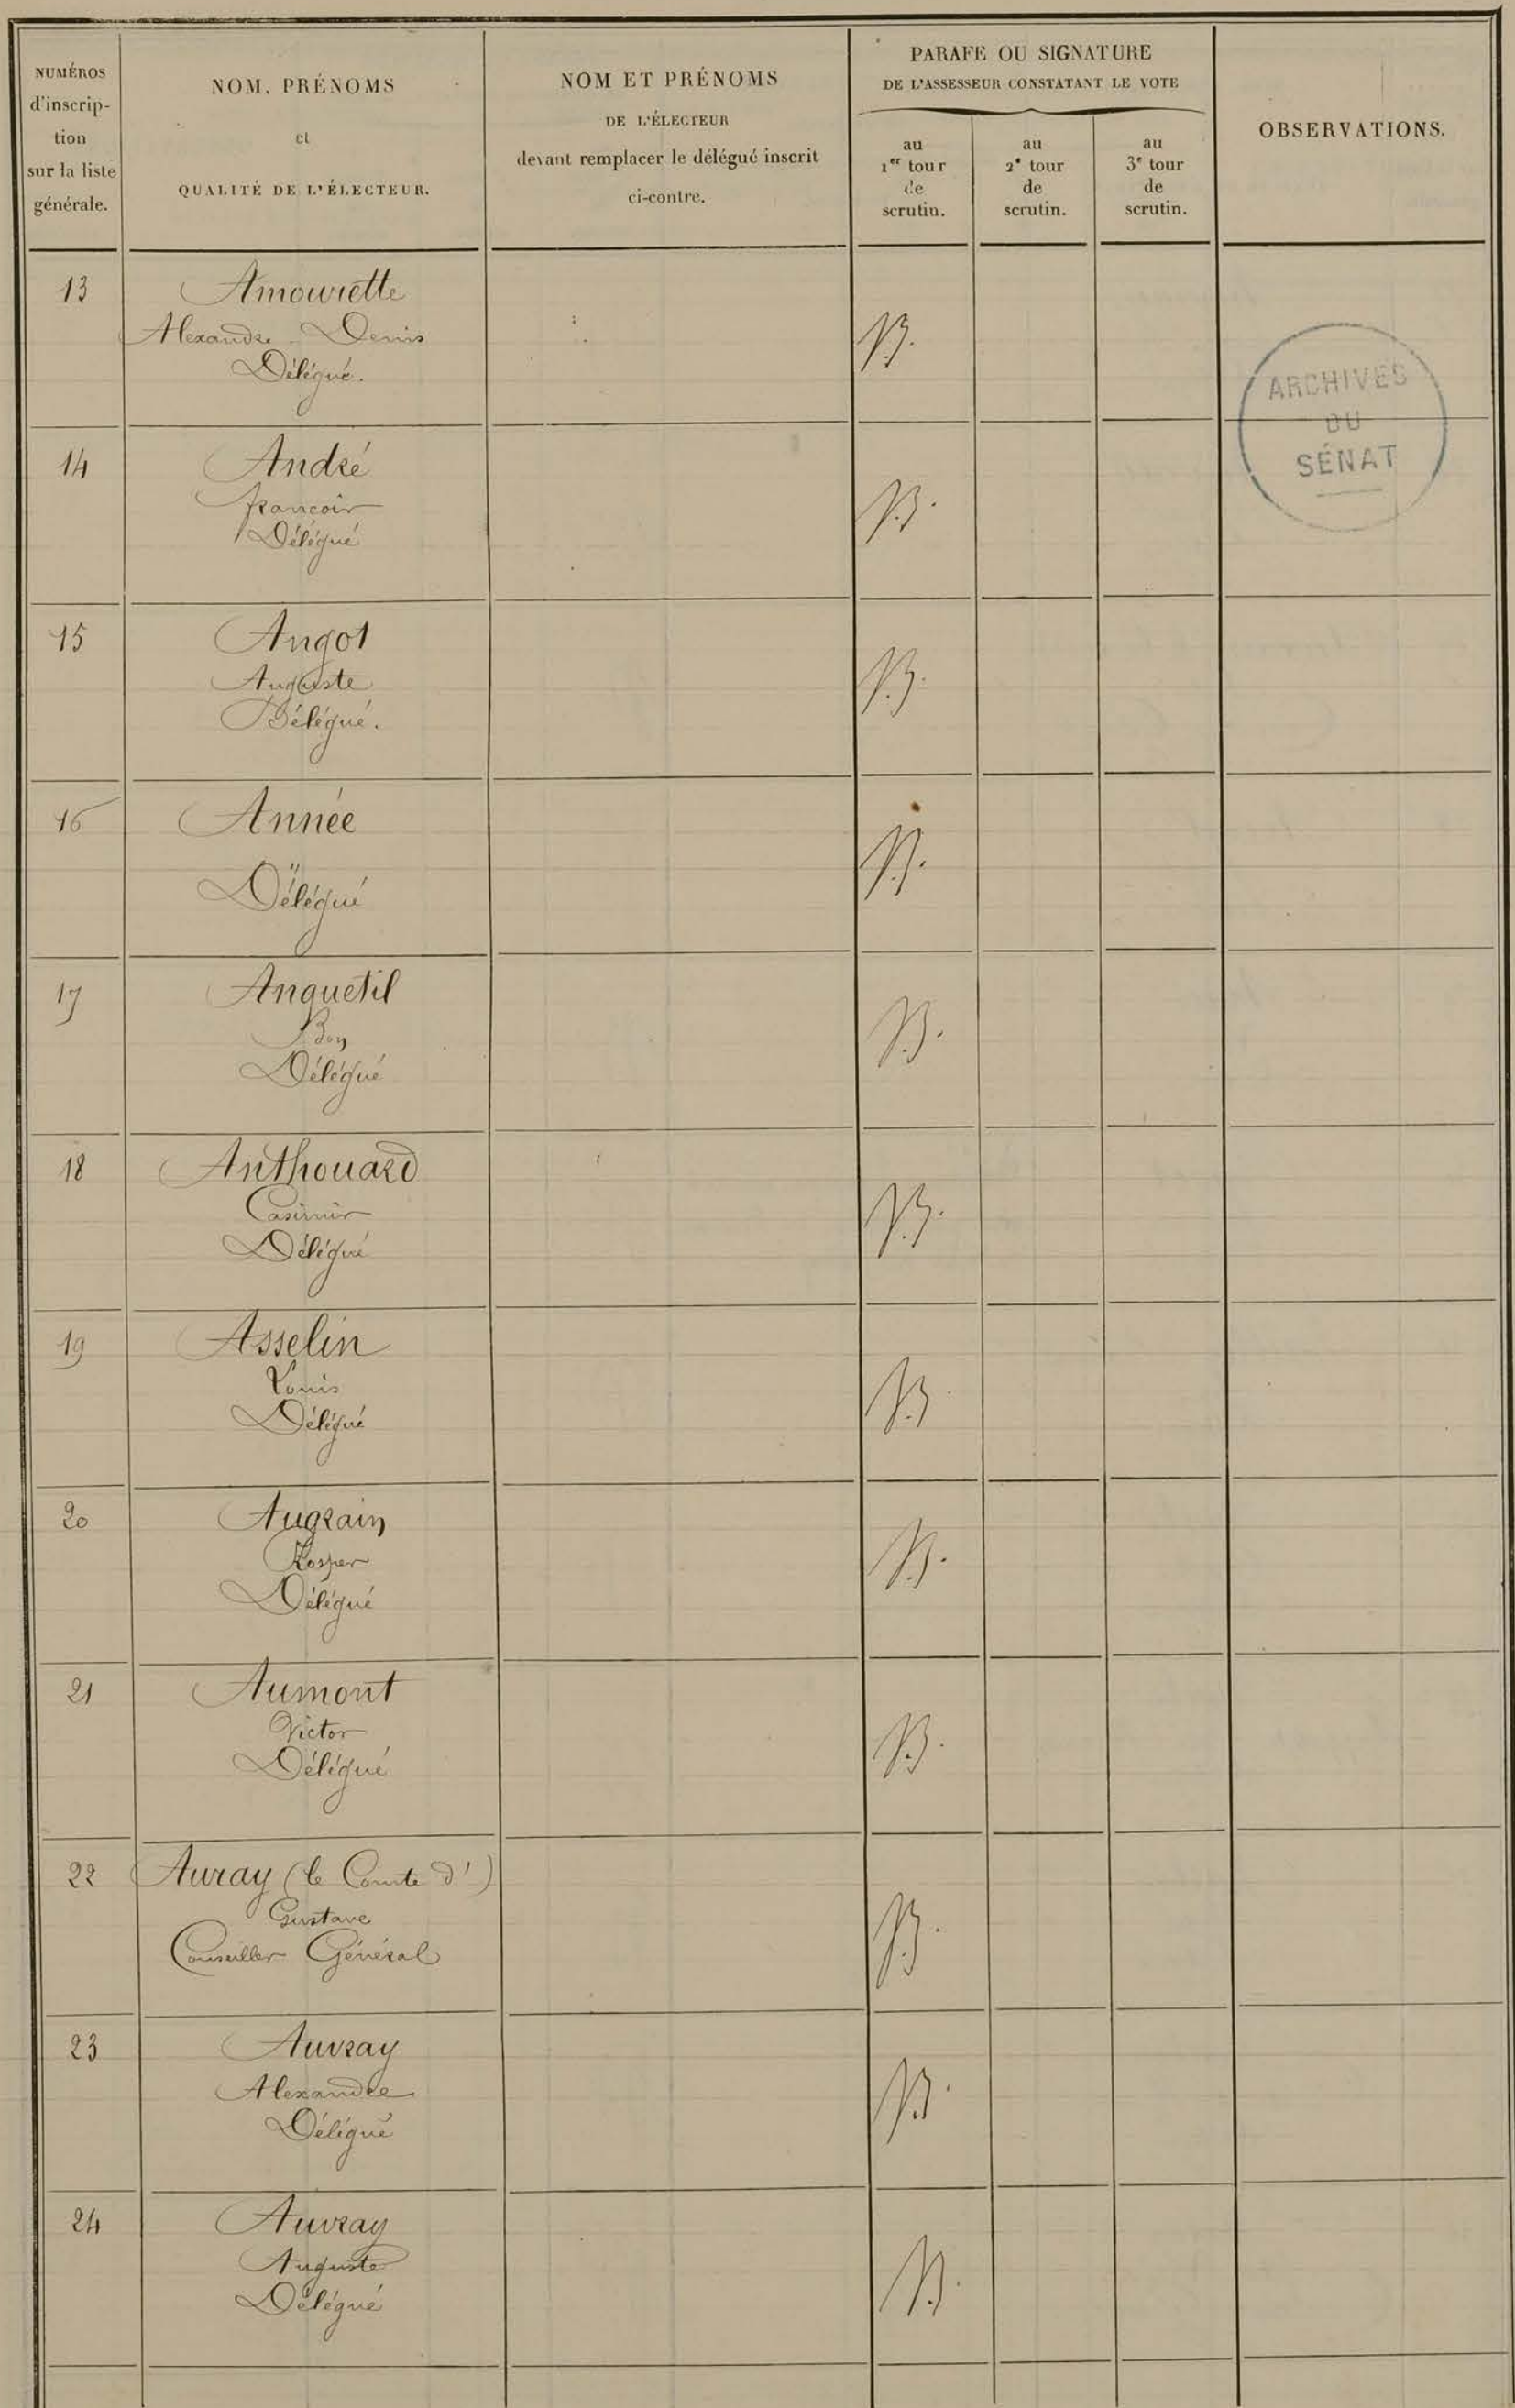 NUMÉROS
d'inscrip-
tion
sur la liste
générale.
NOM, PRÉNOMS
et
QUALITÉ DE L'ÉLECTEUR.
NOM ET PRÉNOMS
DE L'ÉLECTEUR
devant remplacer le délégué inscrit
ci-contre.
PARAFE OU SIGNATURE
DE L'ASSESSEUR CONSTATANT LE VOTE
au
1er tour
de
scrutin.
au
2e tour
de
scrutin.
au
3e tour
de
scrutin.
OBSERVATIONS.
13
Amourette
Alexandre Denis
Délégué.
B.
ARCHIVES
DU
SÉNAT
14
André
françois
Délégué
B.
15
Angot
Auguste
Délégué.
B.
16
Année
"
Délégué
B.
17
Anquetil
Bon
Délégué
B.
18
Anthouard
Casimir
Délégué
B.
19
Asselin
Louis
Délégué
B.
20
Augrain
Prosper
Délégué
B.
21
Aumont
Victor
Délégué
B.
22
Auray (le Comte d')
Gustave
Conseiller Général
B.
23
Auvray
Alexandre
Délégué
B.
24
Auvray
Auguste
Délégué
B.